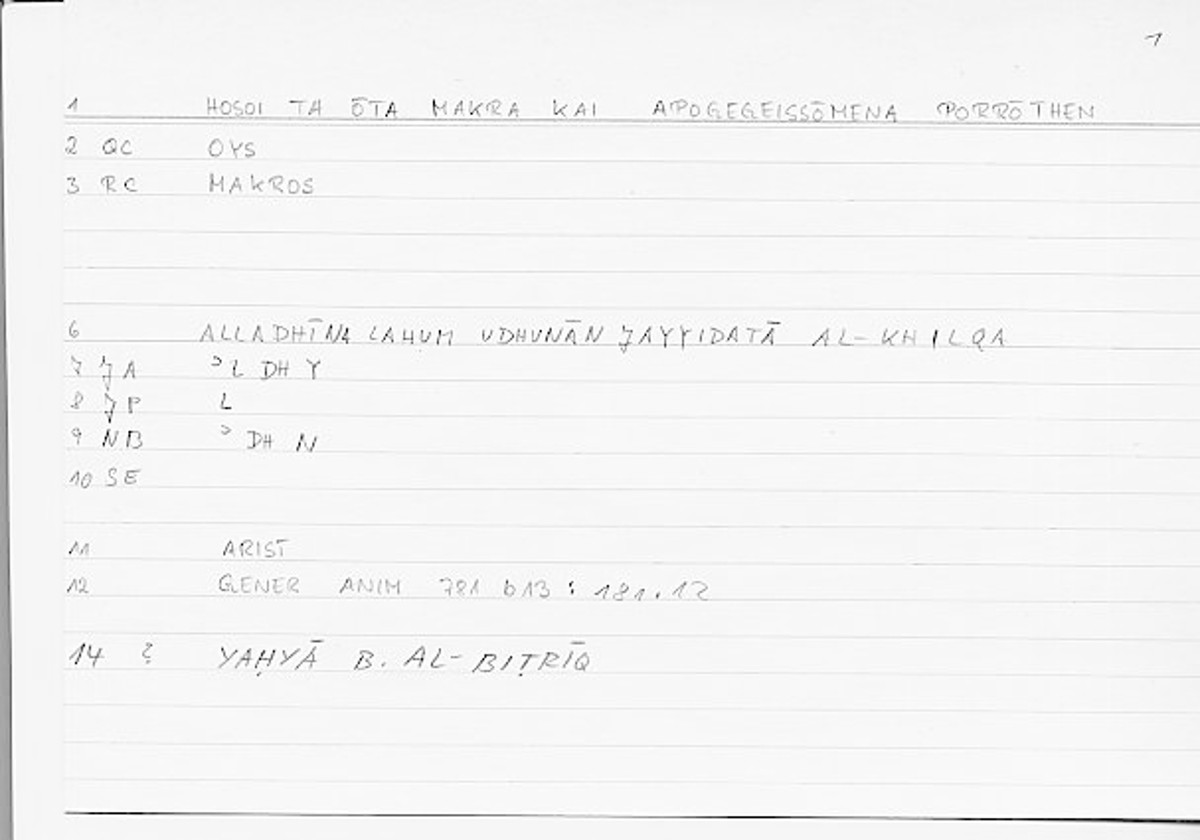 1
1 HOSOI TA ŌTA MAKRA KAI APOGEGEISSŌMENA PORRŌTHEN
2 QC OYS
3 RC MAKROS
6 ALLADHĪNA LAHUM UDHUNĀN JAYYIDATĀ AL-KHILQA
7 JA ᵓL DH Y
8 JP L
9 NB ᵓ DH N
10 SE
11 ARIST
12 GENER ANIM 781 b13 : 181.12
14 ? YAḤYĀ B. AL-BIṬRĪQ